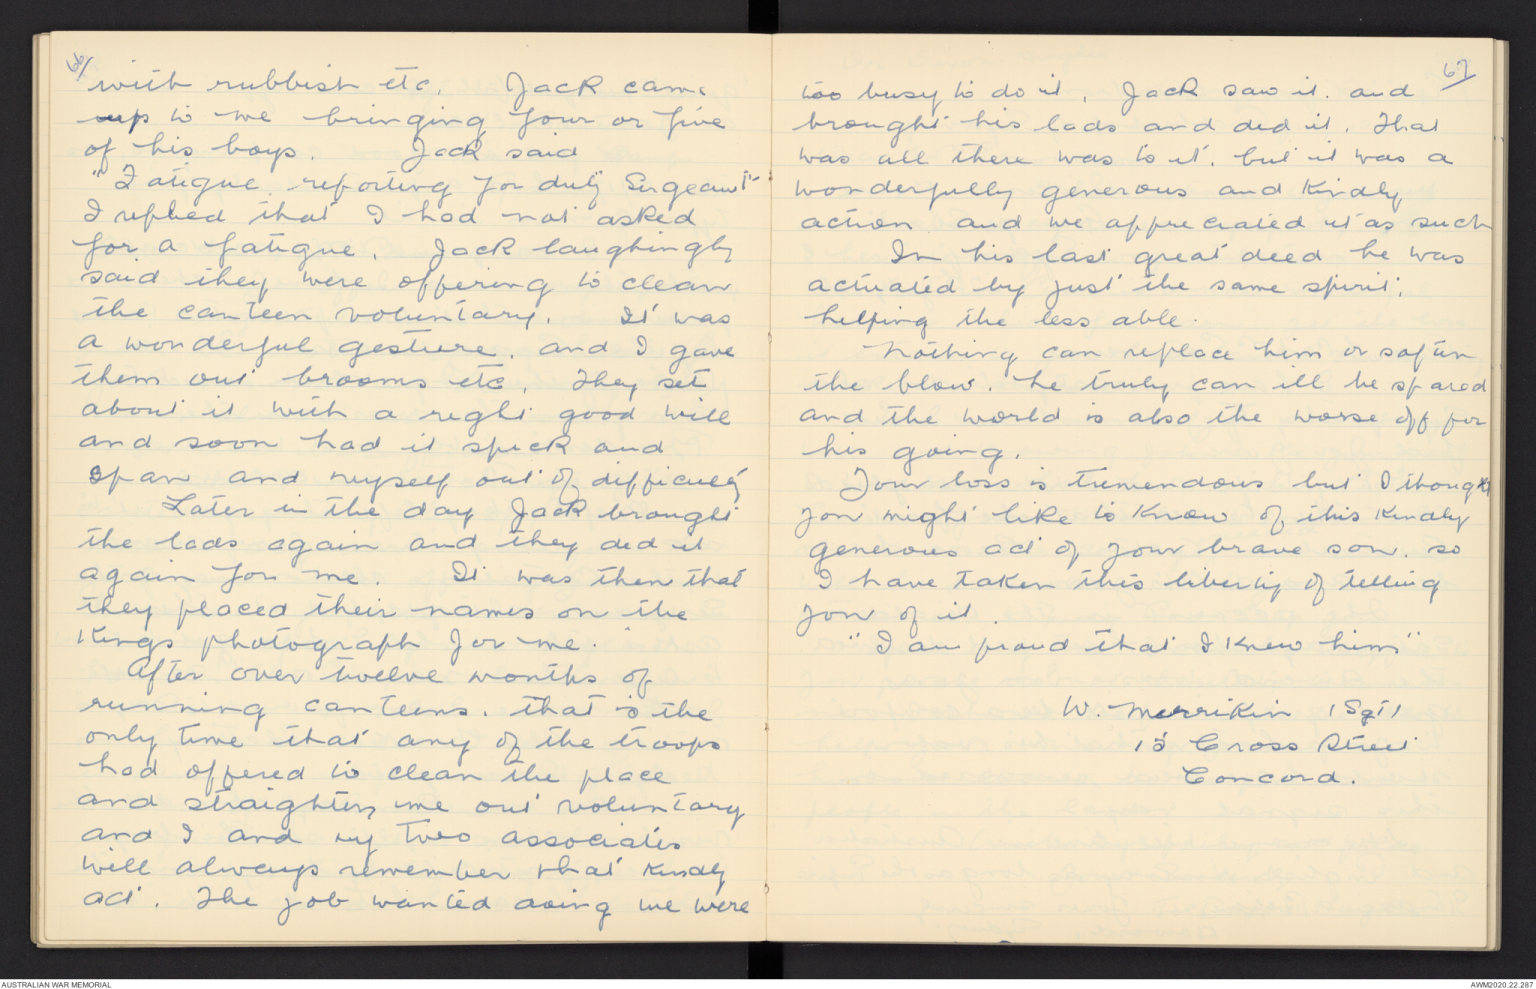 66/
with rubbish etc. Jack came
up to me bringing four or five
of his boys. Jack said
"Fatigue reporting for duty Sergeant"
I replied that I had not asked
for a fatigue. Jack laughingly
said they were offering to clean
the canteen voluntary. It was
a wonderful gesture. and I gave
them out brooms etc. They set
about it with a right good will
and soon had it spick and
span and myself out of difficulty
Later in the day Jack brought
the lads again and they did it
again for me. It was then that
they placed their names on the
Kings photograph for me.
After over twelve months of
running canteens. that is the
only time that any of the troops
had offered to clean the place
and straighten me out voluntary
and I and my two associates
will always remember that kindly
act. The job wanted doing we were
67
too busy to do it. Jack saw it. and
brought his lads and did it. That
was all there was to it. but it was a
wonderfully generous and kindly
action and we appreciated it as such
In his last great deed he was
actuated by just the same spirit.
helping the less able.
Nothing can replace him or soften
the blow. he truly can ill be spared
and the world is also the worse off for
his going.
Your loss is tremendous but I thought
you might like to know of this kindly
generous act of your brave son. so
I have taken this liberty of telling
you of it.
"I am proud that I knew him"
W. Merrikin (Sgt)
15 Cross Street
Concord.
AUSTRALIAN WAR MEMORIAL
AWM2020.22.287